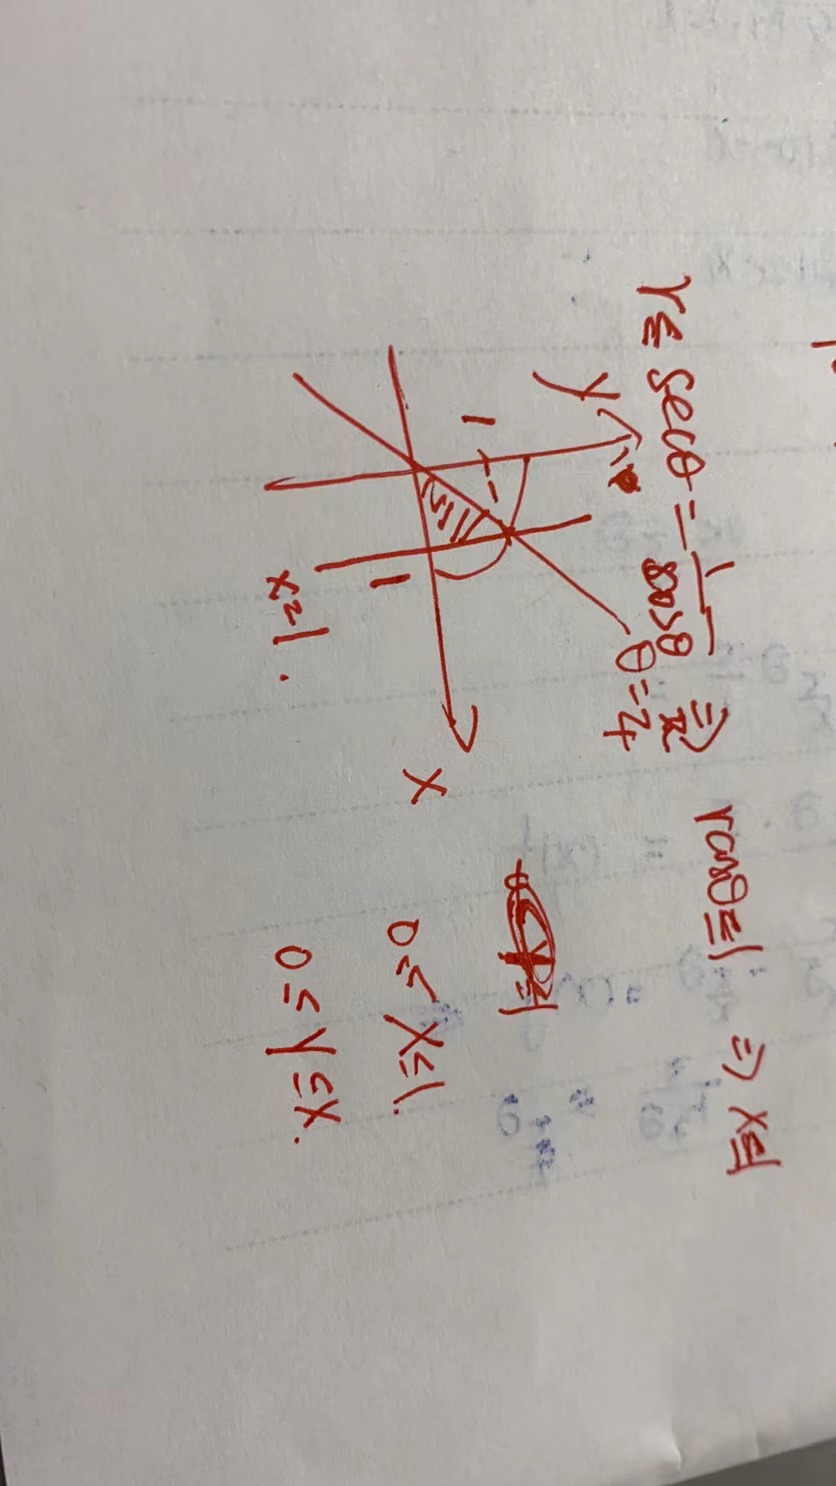 r ≤ secθ = 1/cosθ ⇒ rcosθ ≤ 1 ⇒ x ≤ 1
y
θ = π/4
1
1
x
x=1.
0 ≤ x ≤ 1.
0 ≤ y ≤ x.